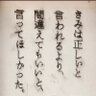 きみは正しいと
言われるより、
間違えてもいいと、
言ってほしかった。